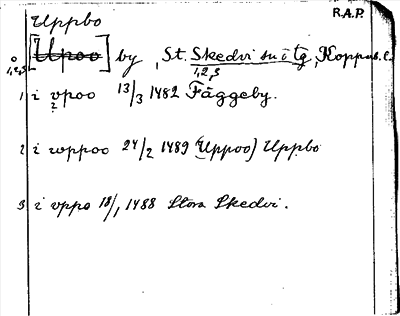 Uppbo
R.A.P.
[Upoo] by, St. Skedvi sn o tg, Koppab. l.
0,
1,2,3
1,2,3
1 i vpoo 13/3 1482 Fäggeby.
2
2 i wppoo 24/2 1489 (Uppoo) Uppbo
3 i vppo 18/1 1488 Stora Skedvi.